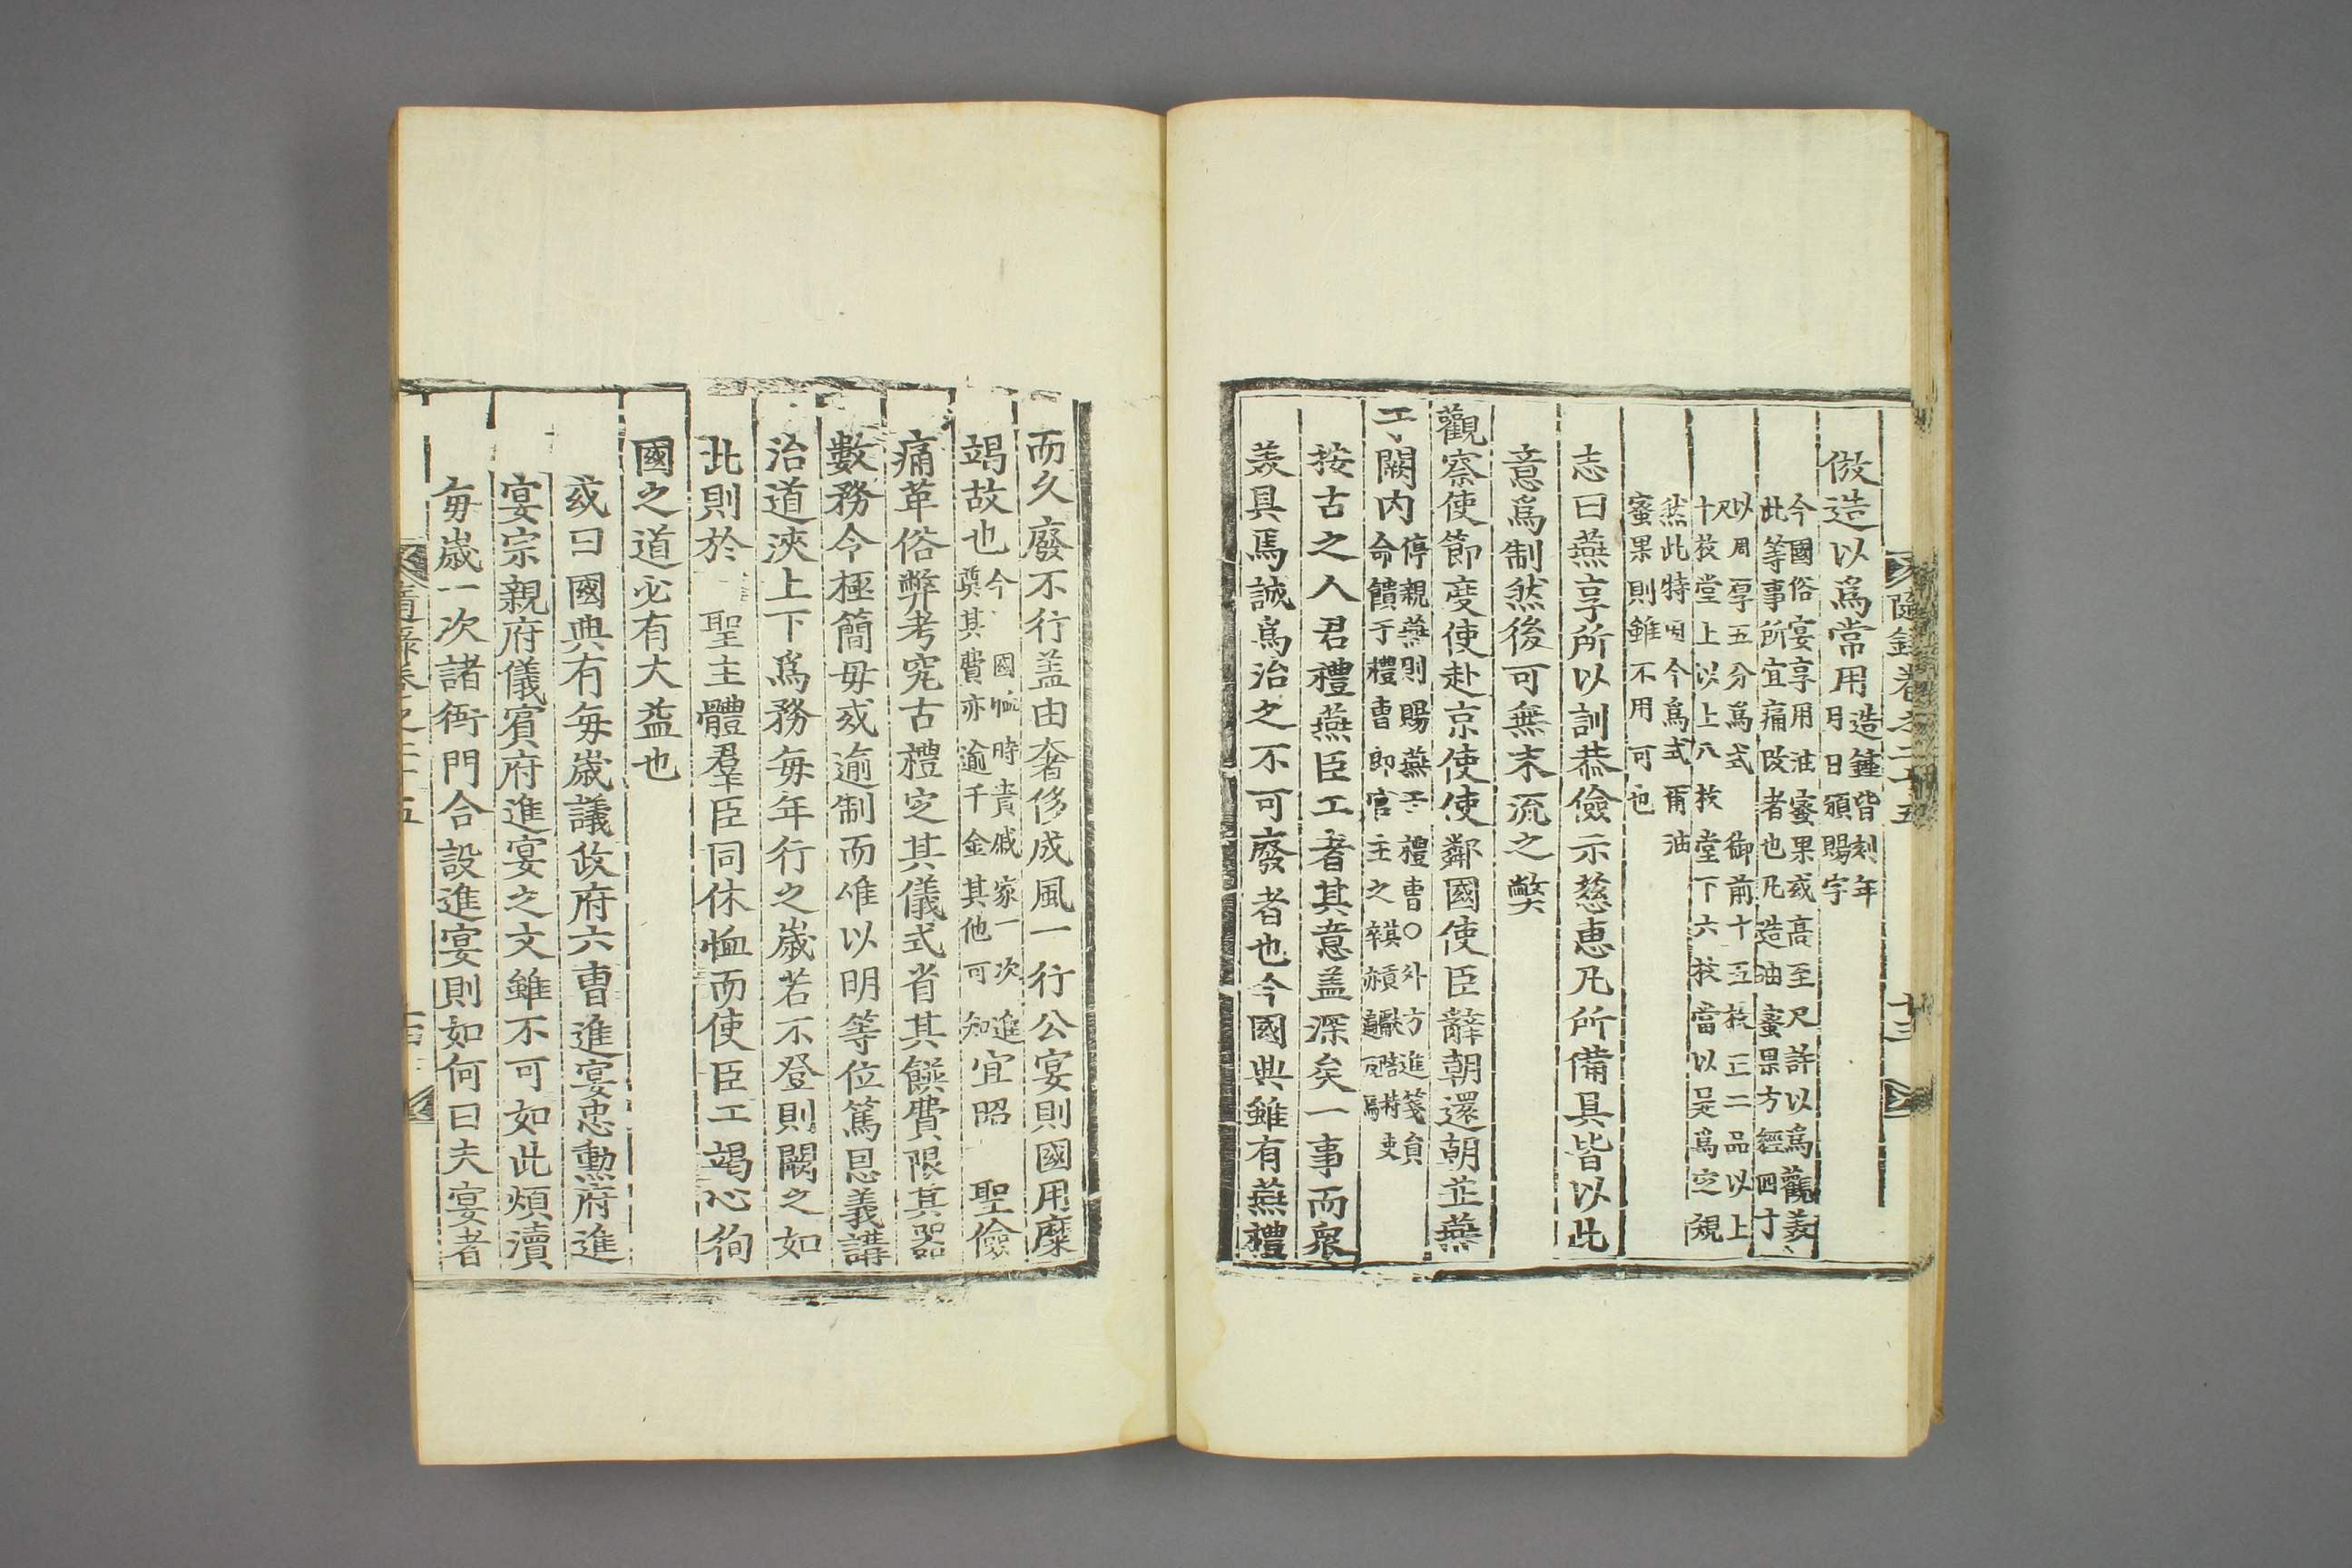 隨録卷之二十五　十三
倣造以爲常用造鍾皆刻年
月日頒賜字
今國俗宴享用油蜜果或高至尺許以爲觀美
此等事所宜痛改者也凡造油蜜果方經四寸
以周厚五分爲式　御前十五枚正二品以上
十枚堂上以上八枚堂下六枚當以是爲定規
然此特因今爲式爾油
蜜果則雖不用可也
志曰燕享所以訓恭儉示慈惠凡所備具皆以此
意爲制然後可無末流之弊
觀察使節度使赴京使使鄰國使臣辭朝還朝並燕
于闕內停親燕則賜燕于禮曹○外方進箋員
命饋于禮曹郎官主之
按古之人君禮燕臣工者其意盖深矣一事而衆
美具焉誠爲治之不可廢者也今國典雖有燕禮
而久廢不行盖由奢侈成風一行公宴則國用糜
竭故也今　國恤時貴戚家一次進
奠其費亦逾千金其他可知
宜昭　聖儉
痛革俗弊考究古禮定其儀式省其饌費限其器
數務令極簡毋或逾制而唯以明等位篤恩義講
治道浹上下爲務每年行之歲若不登則闕之如
此則於　聖主體羣臣同休恤而使臣工竭心徇
國之道必有大益也
或曰國典有每歲議政府六曹進宴忠勳府進
宴宗親府儀賓府進宴之文雖不可如此煩瀆
每歲一次諸衙門合設進宴則如何曰夫宴者